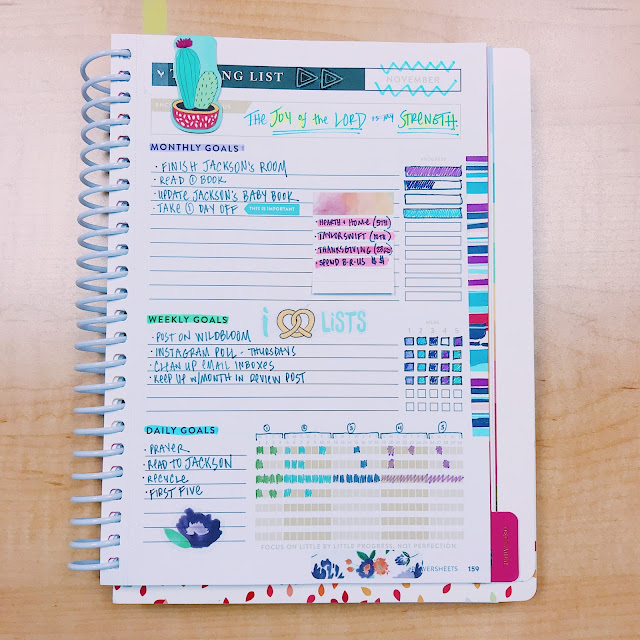 T ING LIST
NOVEMBER
THE JOY of the LORD is my STRENGTH.
MONTHLY GOALS
· FINISH JACKSON'S ROOM
· READ ① BOOK
· UPDATE JACKSON'S BABY BOOK
· TAKE ① DAY OFF
THIS IS IMPORTANT
· HEARTH + HOME (5TH)
· TAYLOR SWIFT
· THANKSGIVING
· SPEND B-R-US $ $
WEEKLY GOALS
i LISTS
WEEK
1 2 3 4 5
· POST ON WILDBLOOM
· INSTAGRAM POLL - THURSDAYS
· CLEAN UP EMAIL INBOXES
· KEEP UP W/MONTH IN REVIEW POST
DAILY GOALS
① ② ③ ④ ⑤
· PRAYER
· READ TO JACKSON
· RECYCLE
· FIRST FIVE
FOCUS ON LITTLE BY LITTLE PROGRESS, NOT PERFECTION.
WERSHEETS 159